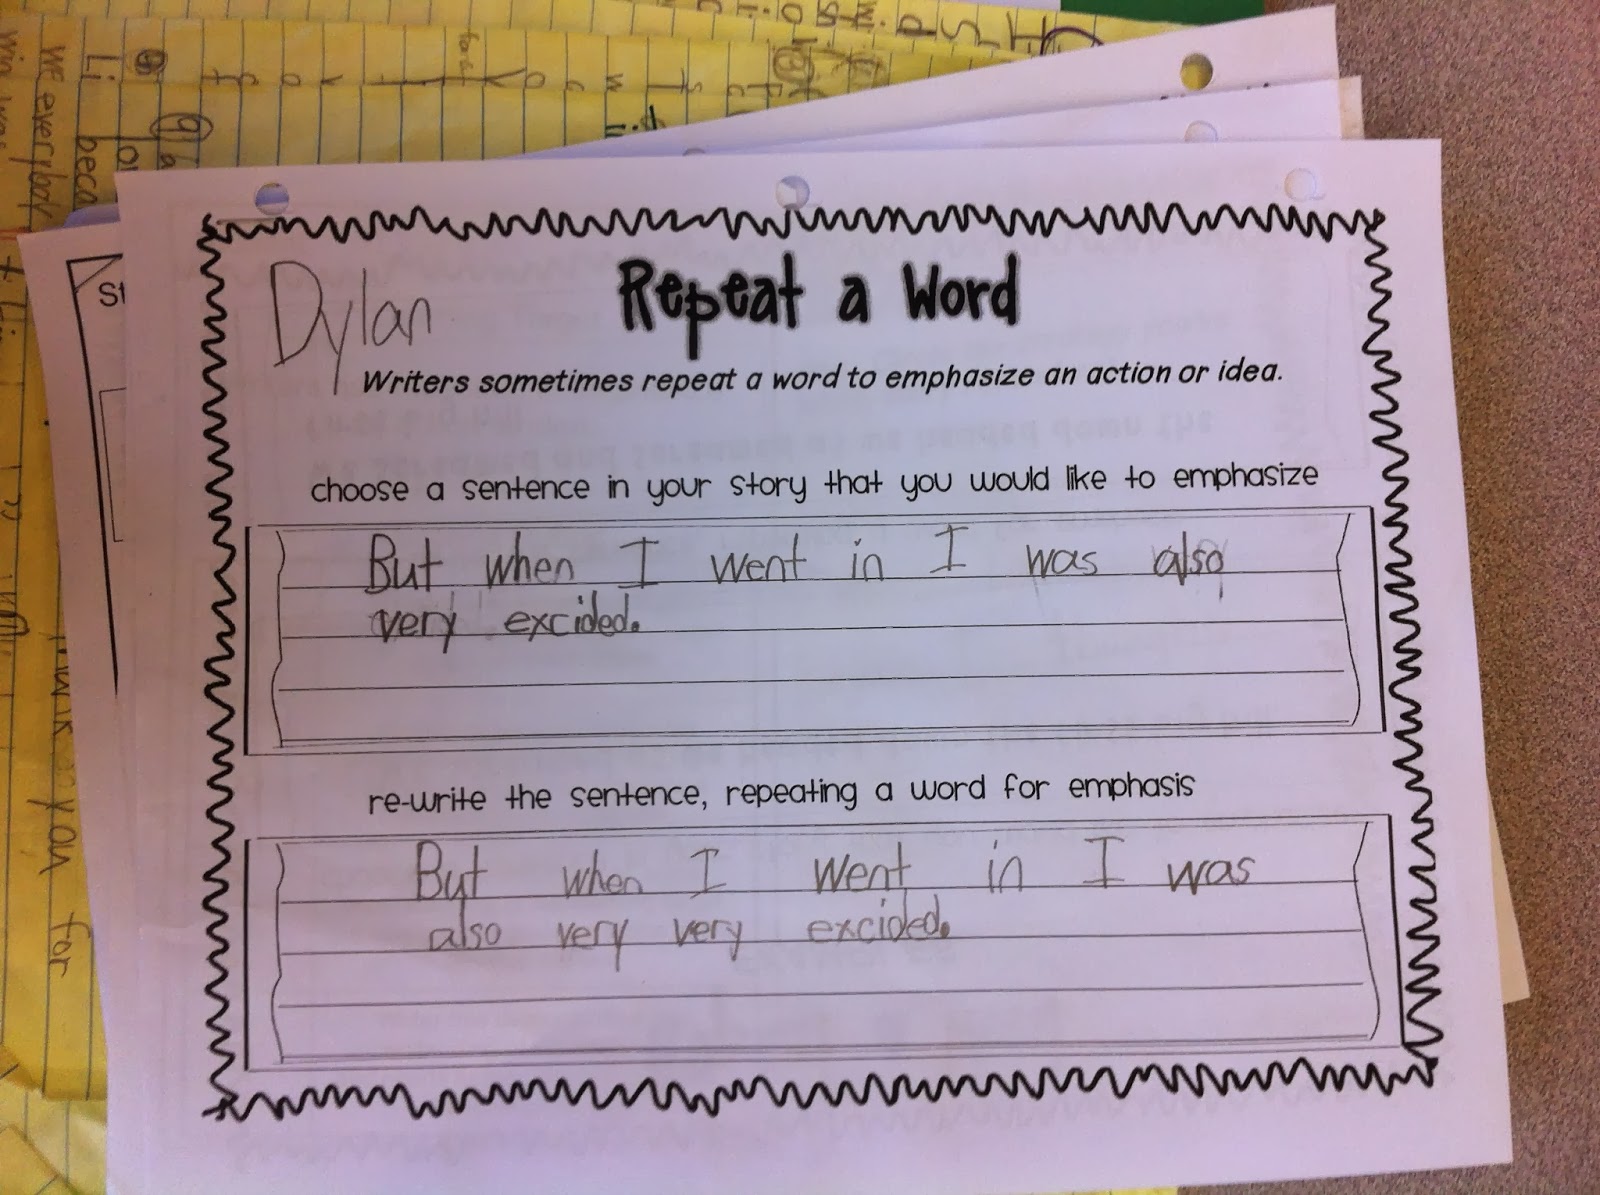 Dylan
Repeat a Word
Writers sometimes repeat a word to emphasize an action or idea.
choose a sentence in your story that you would like to emphasize
But when I went in I was also
very excided.
re-write the sentence, repeating a word for emphasis
But when I went in I was
also very very excided.
St
we everybody
Li
beca
for
you
for